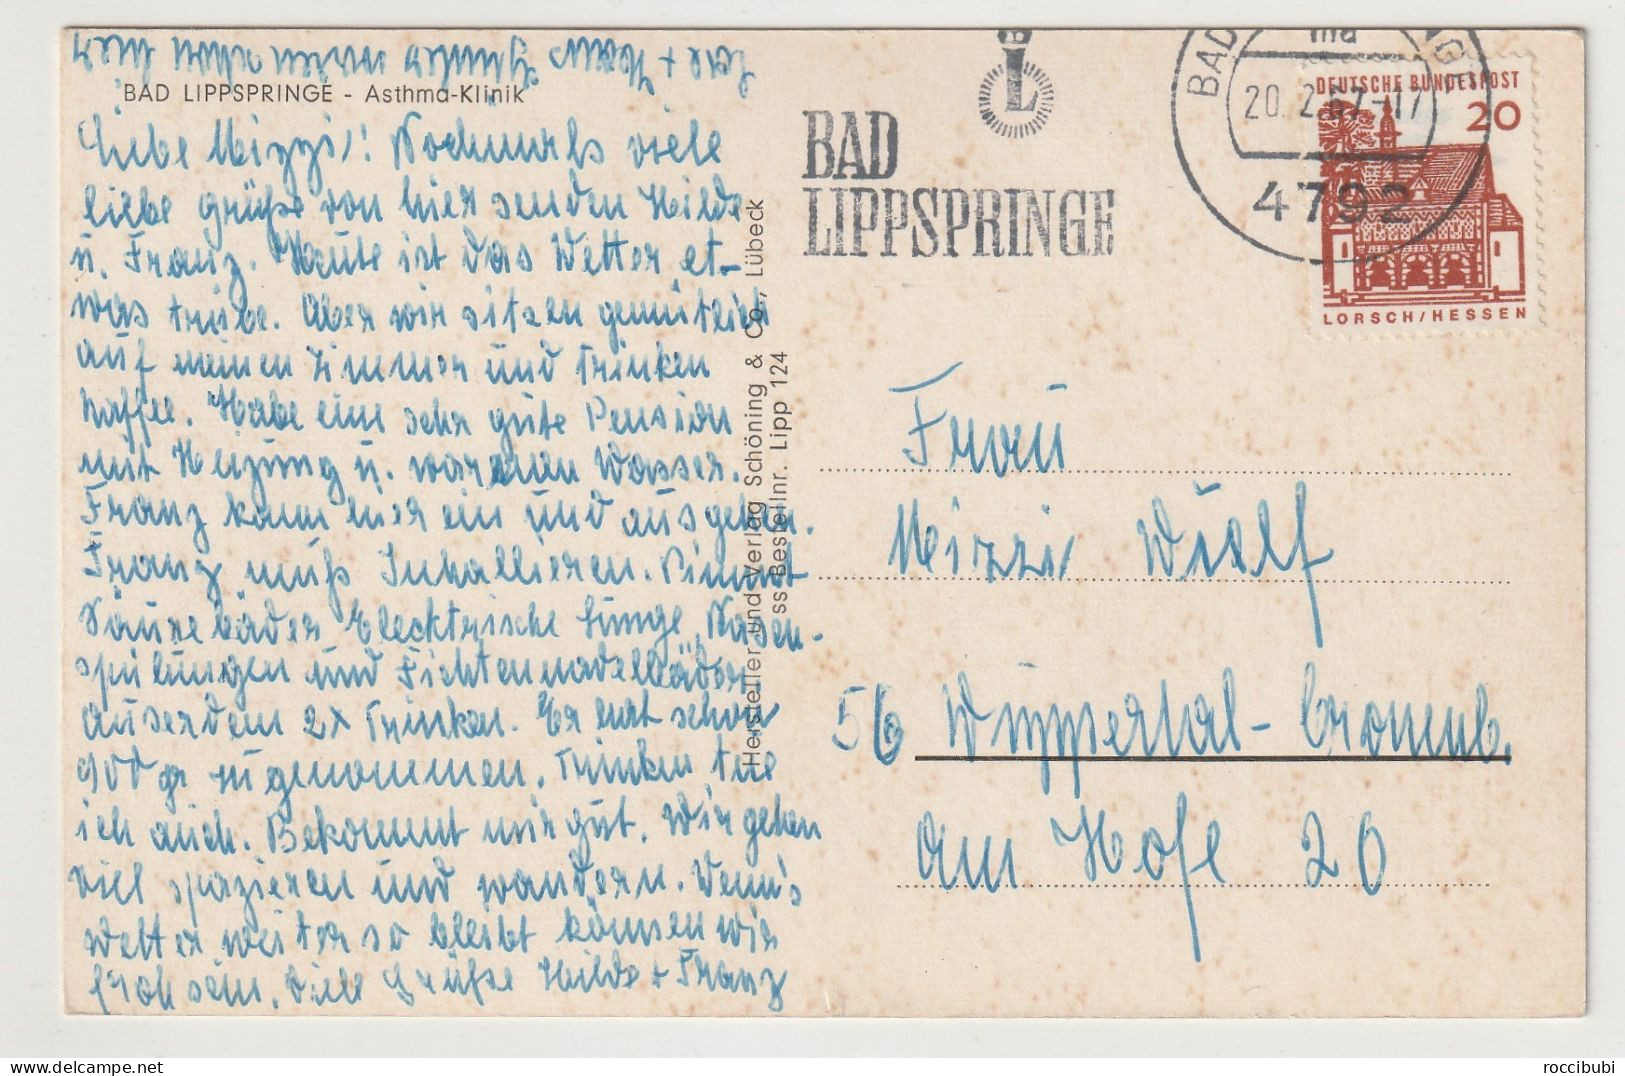 BAD LIPPSPRINGE - Asthma-Klinik
Liebe Mizzi! Nochmals viele
liebe Grüße von hier senden Hilde
u. Franz. Heute ist das Wetter et-
was trübe. Aber wir sitzen gemütlich
auf meinen Zimmer und trinken
Kaffee. Habe eine sehr gute Pension
mit Heizung u. warmen Wasser.
Franz kann hier ein und ausgehen.
Franz muß Inhallieren.
Säurebäder Elecktrische Lunge, Nasen-
spülungen und Fichtennadelbäder,
außerdem 2x Trinken. Er hat schon
900 gr zugenommen. Trinken tue
ich auch. Bekommt mir gut. Wir gehen
viel spazieren und wandern. Wenn's
Wetter weiter so bleibt können wir
froh sein. Viele Grüße Hilde + Franz
Hersteller und Verlag Schöning & Co., Lübeck
ss Bestellnr. Lipp 124
BAD
LIPPSPRINGE
L
BAD
20. 2. 67-17
4792
DEUTSCHE BUNDESPOST
20
LORSCH/HESSEN
Frau
Mizzi Wulf
56 Wuppertal-Cronenb.
Am Hofe 20
roccibubi